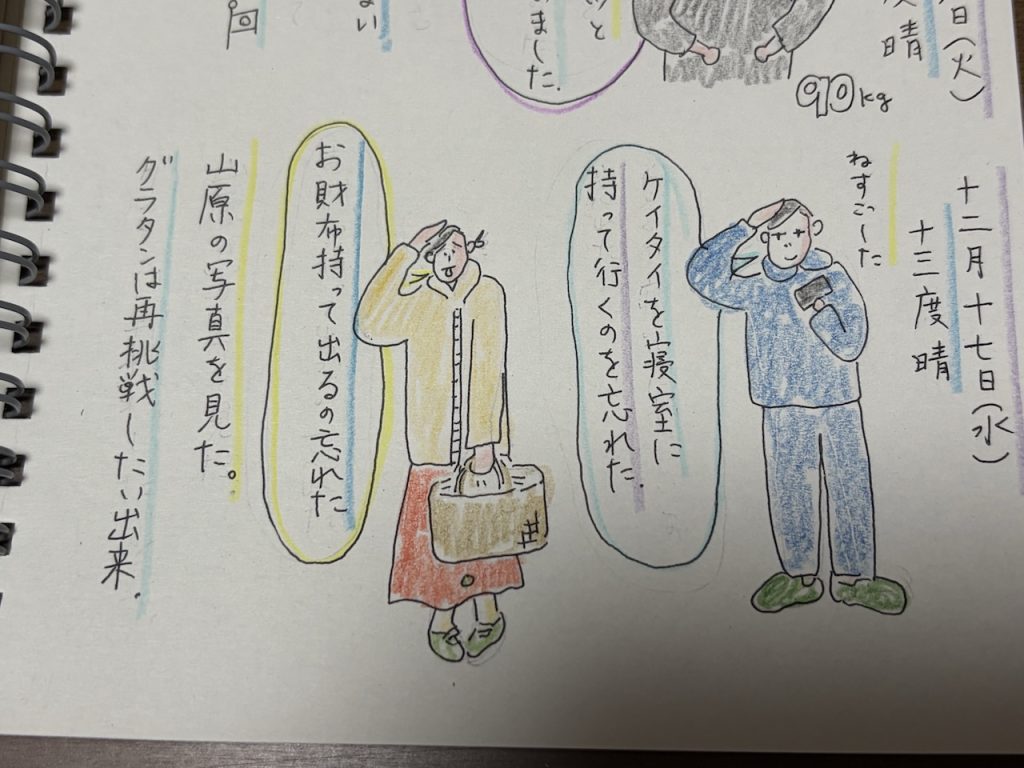 日(火)
晴
90kg
ました.
ない
回
十二月十七日(水)
十三度 晴
ねすごした
ケイタイを寝室に
持って行くのを忘れた.
お財布持って出るの忘れた
山原の写真を見た。
グラタンは再挑戦したい出来.